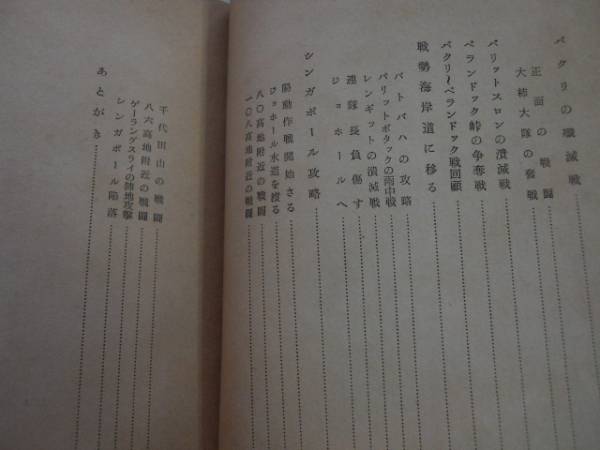 バクリの殲滅戦
正面の戦闘
大柿大隊の奮戦
パリットスロンの潰滅戦
ペランドック峠の争奪戦
バクリ〜ペランドック戦回顧
戦勢海岸道に移る
バトパハの攻略
パリットボタックの雨中戦
レンギットの潰滅戦
連隊長負傷す
ジョホールへ
シンガポール攻略
陽動作戦開始さる
ジョホール水道を渡る
八〇高地附近の戦闘
一〇八高地附近の戦闘
千代田山の戦闘
八六高地附近の戦闘
ゲーラングスライの陣地攻撃
シンガポール陥落
あとがき